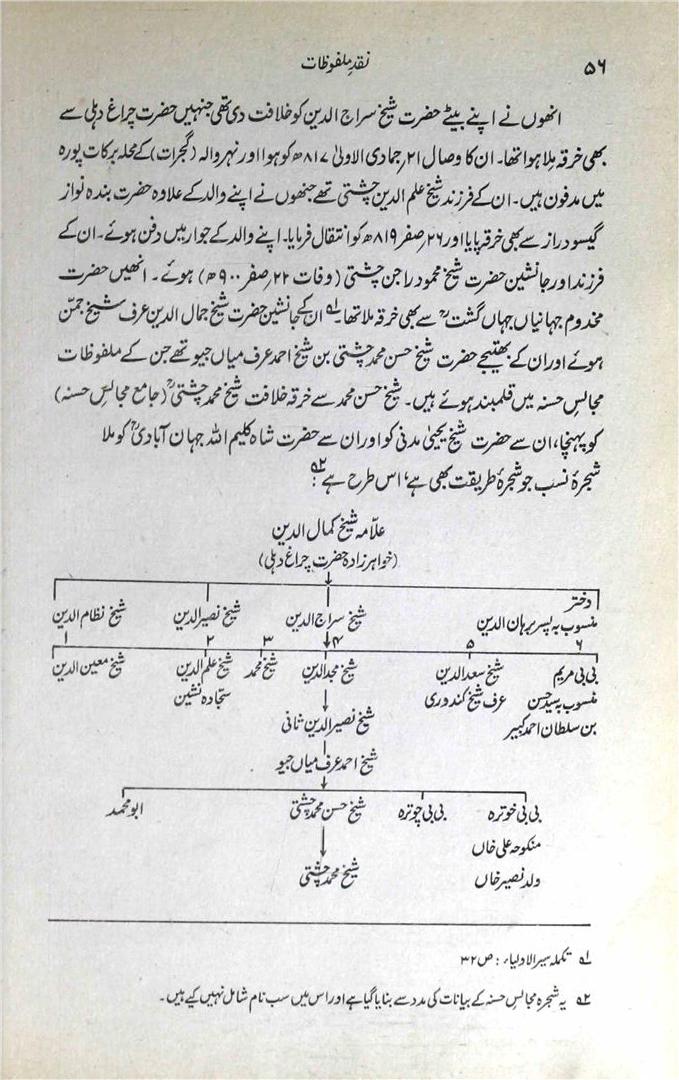 ۵۶
نقدِ ملفوظات
انھوں نے اپنے بیٹے حضرت شیخ سراج الدین کو خلافت دی تھی جنہیں حضرت چراغ دہلی سے
بھی خرقہ ملا ہوا تھا۔ ان کا وصال ۲۱؍جمادی الاولیٰ ۸۱۷ھ کو ہوا اور نہر والہ (گجرات) کے محلہ برکات پورہ
میں مدفون ہیں۔ ان کے فرزند شیخ علم الدین چشتی تھے جنھوں نے اپنے والد کے علاوہ حضرت بندہ نواز
گیسو دراز سے بھی خرقہ پایا اور ۲۶؍صفر ۸۱۹ھ کو انتقال فرمایا۔ اپنے والد کے جوار میں دفن ہوئے۔ ان کے
فرزند اور جانشین حضرت شیخ محمود راجن چشتی (وفات ۲۲؍صفر ۹۰۰ھ) ہوئے۔ انھیں حضرت
مخدوم جہانیاں جہاں گشتؒ سے بھی خرقہ ملا تھا۔ ۱؎ ان کے جانشین حضرت شیخ جمال الدین عرف شیخ جمّن
ہوئے اور ان کے بھتیجے حضرت شیخ حسن محمد چشتی بن شیخ احمد عرف میاں جیو تھے جن کے ملفوظات
مجالسِ حسنہ میں قلمبند ہوئے ہیں۔ شیخ حسن محمد سے خرقہ خلافت شیخ محمد چشتیؒ (جامع مجالسِ حسنہ)
کو پہنچا، ان سے حضرت شیخ یحییٰ مدنی کو اور ان سے حضرت شاہ کلیم اللہ جہان آبادیؒ کو ملا
شجرۂ نسب جو شجرۂ طریقت بھی ہے، اس طرح ہے ۲؎:
علّامہ شیخ کمال الدین
(خواہر زادہ حضرت چراغ دہلی)
دختر
منسوب بہ پسر برہان الدین
شیخ سراج الدین
شیخ نصیر الدین
شیخ نظام الدین
۶ ۵ ۴ ۳ ۲ ۱
بی بی مریم شیخ سعد الدین شیخ مجد الدین شیخ محمد شیخ علم الدین شیخ معین الدین
منسوب بہ سید حسن عرف شیخ کندوری سجّادہ نشین
بن سلطان احمد کبیر
شیخ نصیر الدین ثانی
شیخ احمد عرف میاں جیو
بی بی خونزہ بی بی چوترہ شیخ حسن محمد چشتی ابو محمد
منکوحہ علی خاں
ولد نصیر خاں
شیخ محمد چشتی
۱؎ تکملہ سیر الاولیاء : ص ۳۲
۲؎ یہ شجرہ مجالسِ حسنہ کے بیانات کی مدد سے بنایا گیا ہے اور اس میں سب نام شامل نہیں کیے ہیں۔